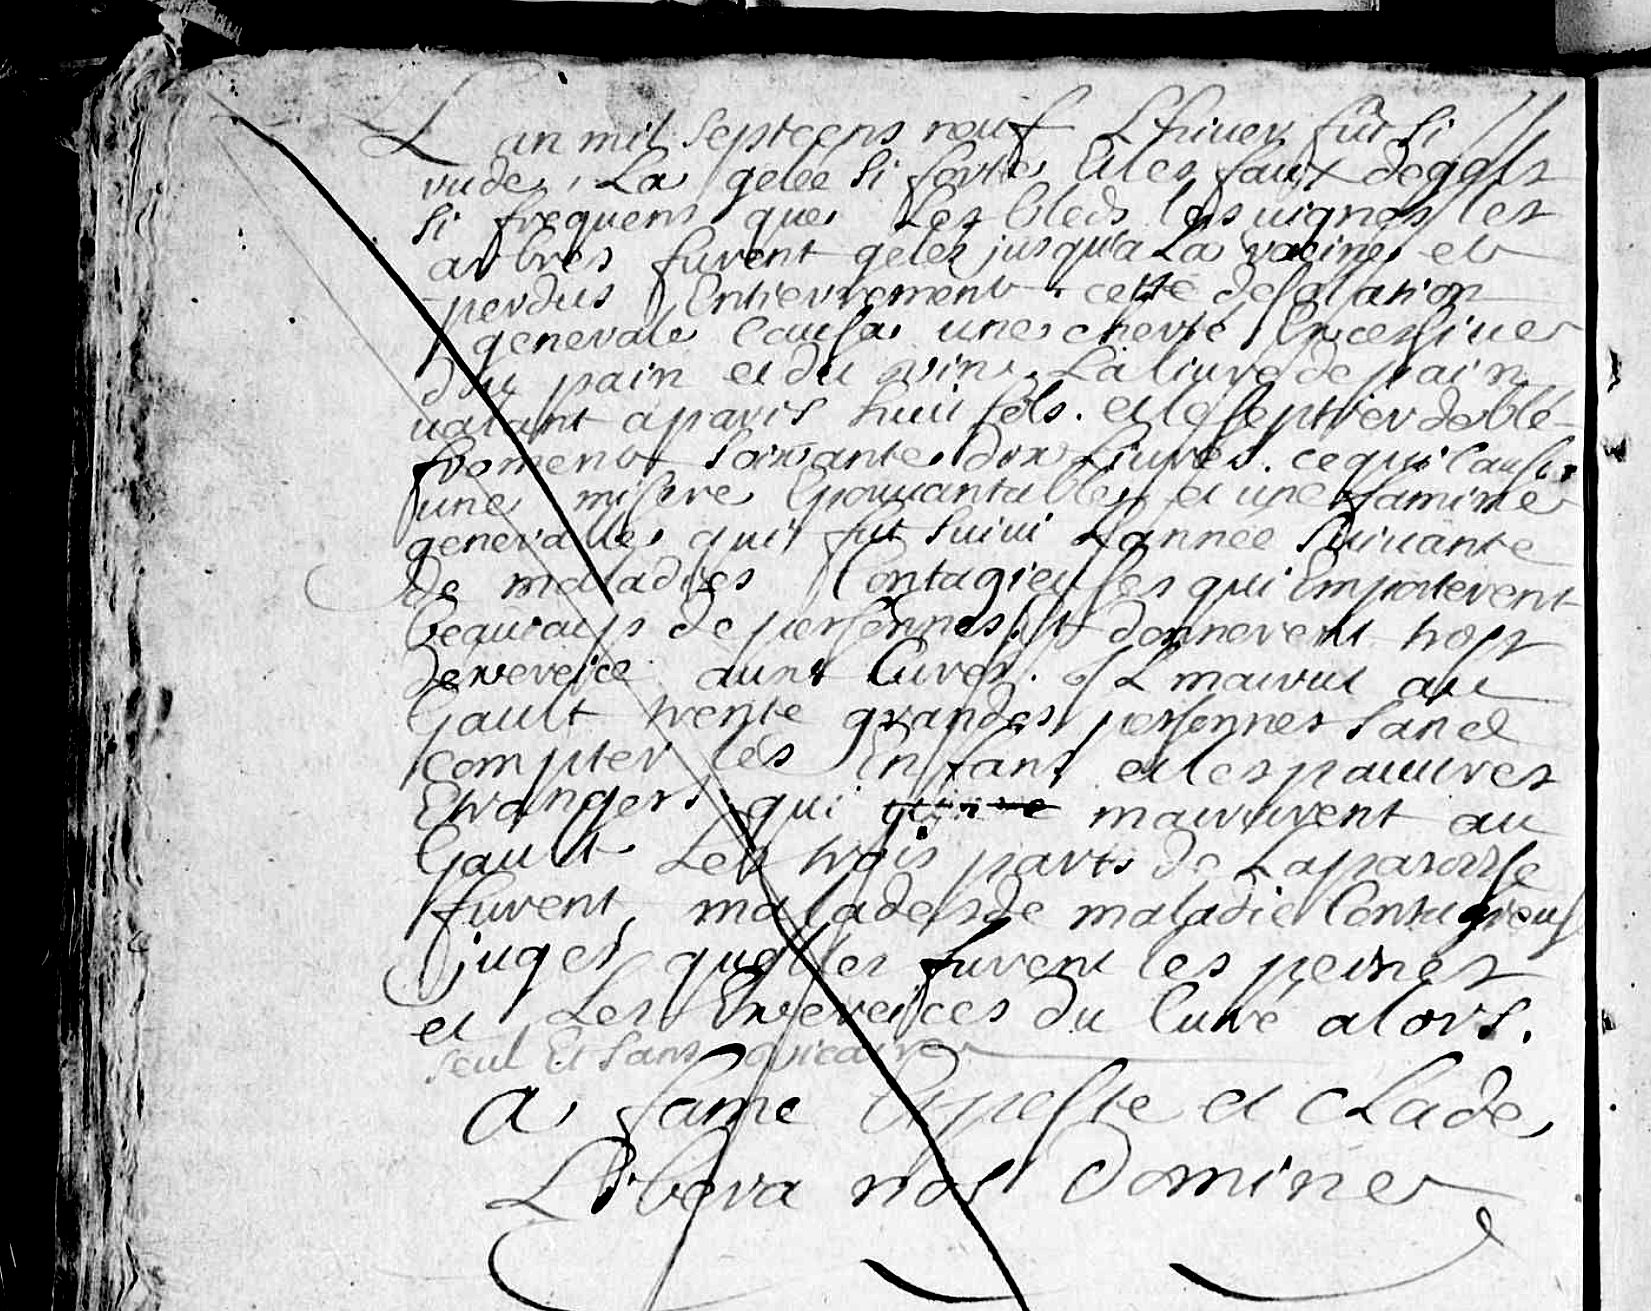 L an mil septcens neuf Lhiuer fut si
rude, La gelée si forte et les faux degels
si frequens que Les bleds les uignes les
arbres furent gelez jusqu'a La racine et
perdus Entierrement. cette desolation
generale causa une cherté Excessiue
du pain et du vin. La liure de pain
ualant a paris huit sols. et le septier de blé
froment soixante dix Liures. ce qui causa
une misere Epouuantable et une famine
generalle qui fut suiui Lannée suiuante
de maladies Contagieuses qui Emporterent
beaucoup de personnes. Et donnerent trop
dexercice aux Curez. IL mourut au
Gault trente grandes personnes sans
compter les Enfans et les pauures
Etrangers qui moururent au
Gault Les trois parts de La paroisse
furent malades de maladie Contagieus
jugez quelles furent les peines
et Les Exercices du Curé alors.
seul Et sans vicaire
A fame Et peste et clade
Libera nos domine